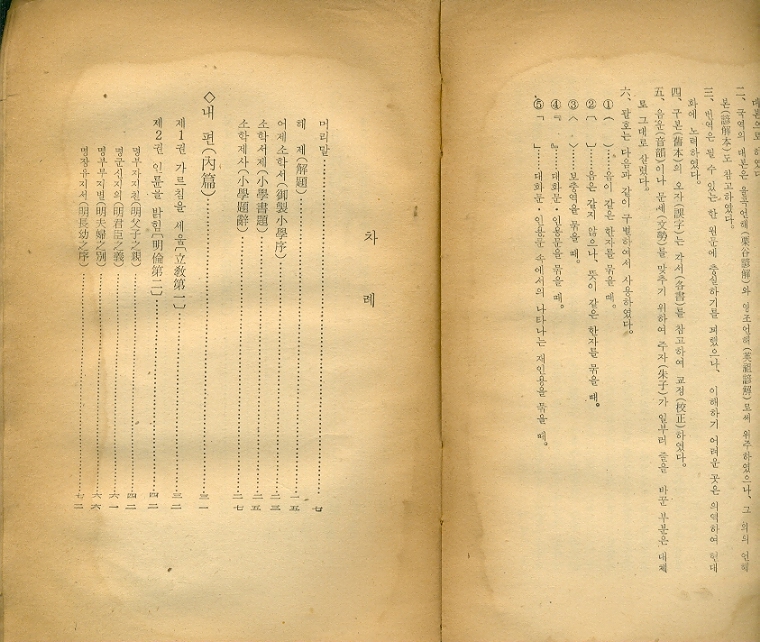 대본으로 하였다
二、 국역의 대본은 율곡언해(栗谷諺解)와 영조언해(英祖諺解)로써 위주하였으나、 그 외의 언해
본(諺解本)도 참고하였다。
三、 번역은 될 수 있는 한 원문에 충실하기를 꾀했으나、 이해하기 어려운 곳은 의역하여 현대
화에 노력하였다。
四、 구본(舊本)의 오자(誤字)는 각서(各書)를 참고하여 교정(校正)하였다。
五、 음운(音韻)이나 문세(文勢)를 맞추기 위하여 주자(朱子)가 일부러 줄을 바꾼 부분은 대체
로 그대로 살렸다。
六、 괄호는 다음과 같이 구별하여서 사용하였다。
① ( )……음이 같은 한자를 묶을 때。
② 〔 〕……음은 같지 않으나、 뜻이 같은 한자를 묶을 때。
③ 〈 〉……보충역을 묶을 때。
④ 『 』……대화문·인용문을 묶을 때。
⑤ 「 」……대화문·인용문 속에서의 나타나는 재인용을 묶을 때。
차 례
머리말……七
해 제(解題)……一五
어제소학서(御製小學序)……二三
소학서제(小學書題)……二五
소학제사(小學題辭)……二七
◇내 편(內篇)……三一
제1권 가르침을 세움〔立敎第一〕……三二
제2권 인륜을 밝힘〔明倫第二〕……四二
명부자지친(明父子之親)……四二
명군신지의(明君臣之義)……六一
명부부지별(明夫婦之別)……六六
명장유지서(明長幼之序)……七二